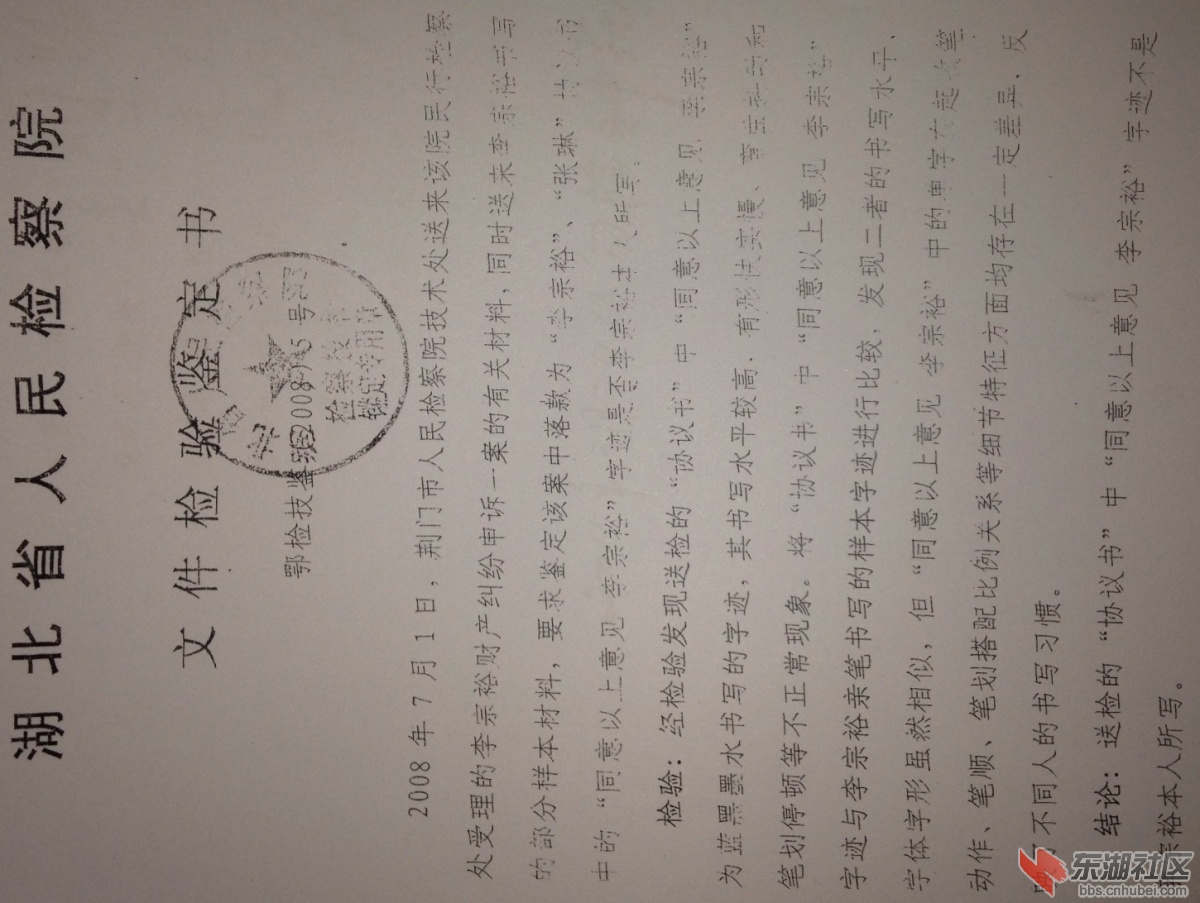 湖北省人民检察院
文件检验鉴定书
鄂检技鉴 2008 15号
检察技术
鉴定专用章
2008年7月1日，荆门市人民检察院技术处送来该院民行检察
处受理的李宗裕财产纠纷申诉一案的有关材料，同时送来李宗裕书写
的部分样本材料，要求鉴定该案中落款为“李宗裕”、“张琳”协议书
中的“同意以上意见 李宗裕”字迹是否李宗裕本人所写。
检验：经检验发现送检的“协议书”中“同意以上意见 李宗裕”
为蓝黑墨水书写的字迹，其书写水平较高，有形快实慢、抖动和
笔划停顿等不正常现象。将“协议书”中“同意以上意见 李宗裕”
字迹与李宗裕亲笔书写的样本字迹进行比较，发现二者的书写水平、
字体字形虽然相似，但“同意以上意见 李宗裕”中的单字在起收笔
动作、笔顺、笔划搭配比例关系等细节特征方面均存在一定差异，反
映了不同人的书写习惯。
结论：送检的“协议书”中“同意以上意见 李宗裕”字迹不是
李宗裕本人所写。
东湖社区
bbs.cnhubei.com